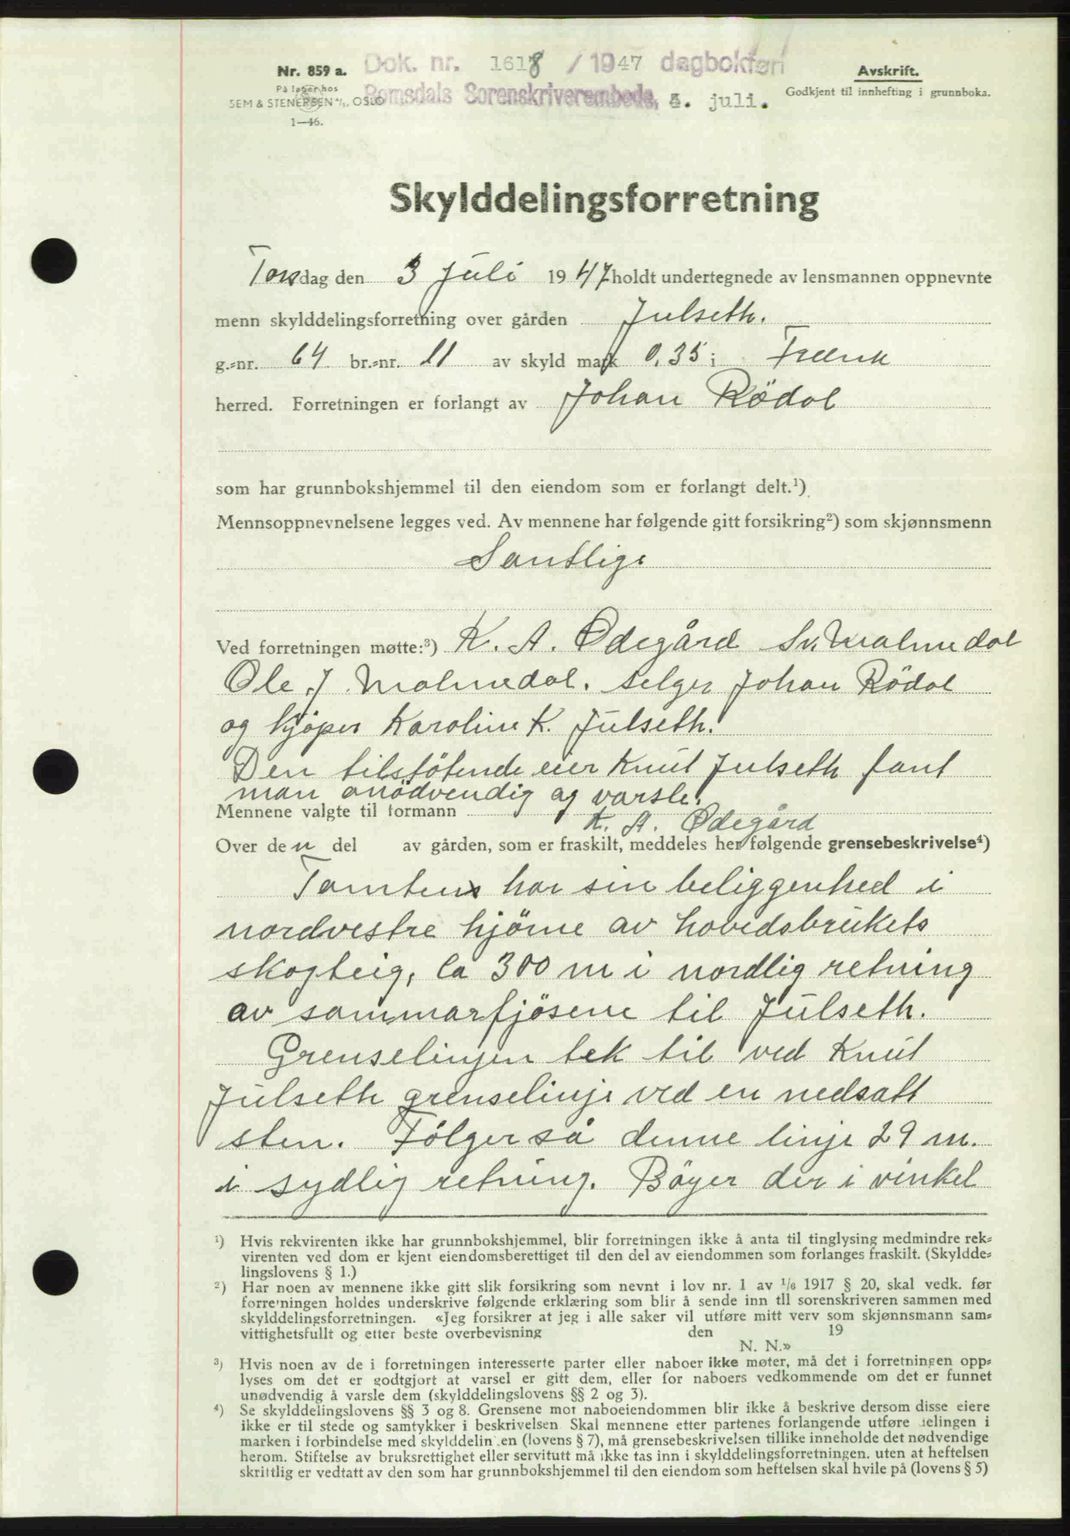 Nr. 859 a.
På lager hos
SEM & STENERSEN A/S, OSLO
1—46.
Dok. nr. 1618 / 1947 dagbokført
Romsdals Sorenskriverembede, 5. juli.
Avskrift.
Godkjent til innhefting i grunnboka.
Skylddelingsforretning
Torsdag den 3 Juli 1947 holdt undertegnede av lensmannen oppnevnte
menn skylddelingsforretning over gården Julseth.
g.-nr. 64 br.-nr. 11 av skyld mark 0,35 i Fræna
herred. Forretningen er forlangt av Johan Rödal
som har grunnbokshjemmel til den eiendom som er forlangt delt.¹)
Mennsoppnevnelsene legges ved. Av mennene har følgende gitt forsikring²) som skjønnsmenn
Samtlige
Ved forretningen møtte:³) K. A. Ødegård Sv. Malmedal
Ole J. Malmedal. Selger Johan Rödal
og kjöper Karoline K. Julseth.
Den tilstötende eier Knut Julseth fant
man onödvendig og varsle.
Mennene valgte til formann K. A. Ødegård
Over den del av gården, som er fraskilt, meddeles her følgende grensebeskrivelse⁴)
Tomten har sin beliggenhed i
nordvestre hjörne av hovedsbrukets
skogteig, ca 300 m i nordlig retning
av sommarfjösene til Julseth.
Grenselinjen tek til ved Knut
Julseth grenselinje ved en nedsatt
sten. Fölger så denne linje 29 m.
i sydlig retning. Böyer der i vinkel
¹) Hvis rekvirenten ikke har grunnbokshjemmel, blir forretningen ikke å anta til tinglysing medmindre rek-
virenten ved dom er kjent eiendomsberettiget til den del av eiendommen som forlanges fraskilt. (Skyldde-
lingslovens § 1.)
²) Har noen av mennene ikke gitt slik forsikring som nevnt i lov nr. 1 av 1/6 1917 § 20, skal vedk. før
forretningen holdes underskrive følgende erklæring som blir å sende inn til sorenskriveren sammen med
skylddelingsforretningen. «Jeg forsikrer at jeg i alle saker vil utføre mitt verv som skjønnsmann sam-
vittighetsfullt og etter beste overbevisning den 19
N. N.»
³) Hvis noen av de i forretningen interesserte parter eller naboer ikke møter, må det i forretningen opp-
lyses om det er godtgjort at varsel er gitt dem, eller for naboers vedkommende om det er funnet
unødvendig å varsle dem (skylddelingslovens §§ 2 og 3).
⁴) Se skylddelingslovens §§ 3 og 8. Grensene mot naboeiendommen blir ikke å beskrive dersom disse eiere
ikke er til stede og samtykker i beskrivelsen Skal mennene etter partenes forlangende utføre delingen i
marken i forbindelse med skylddelingen (lovens § 7), må grensebeskrivelsen tillike inneholde det nødvendige
herom. Stiftelse av bruksrettighet eller servitutt må ikke tas inn i skylddelingsforretningen, uten at heftelsen
skriftlig er vedtatt av den som har grunnbokshjemmel til den eiendom som heftelsen skal hvile på (lovens § 5)